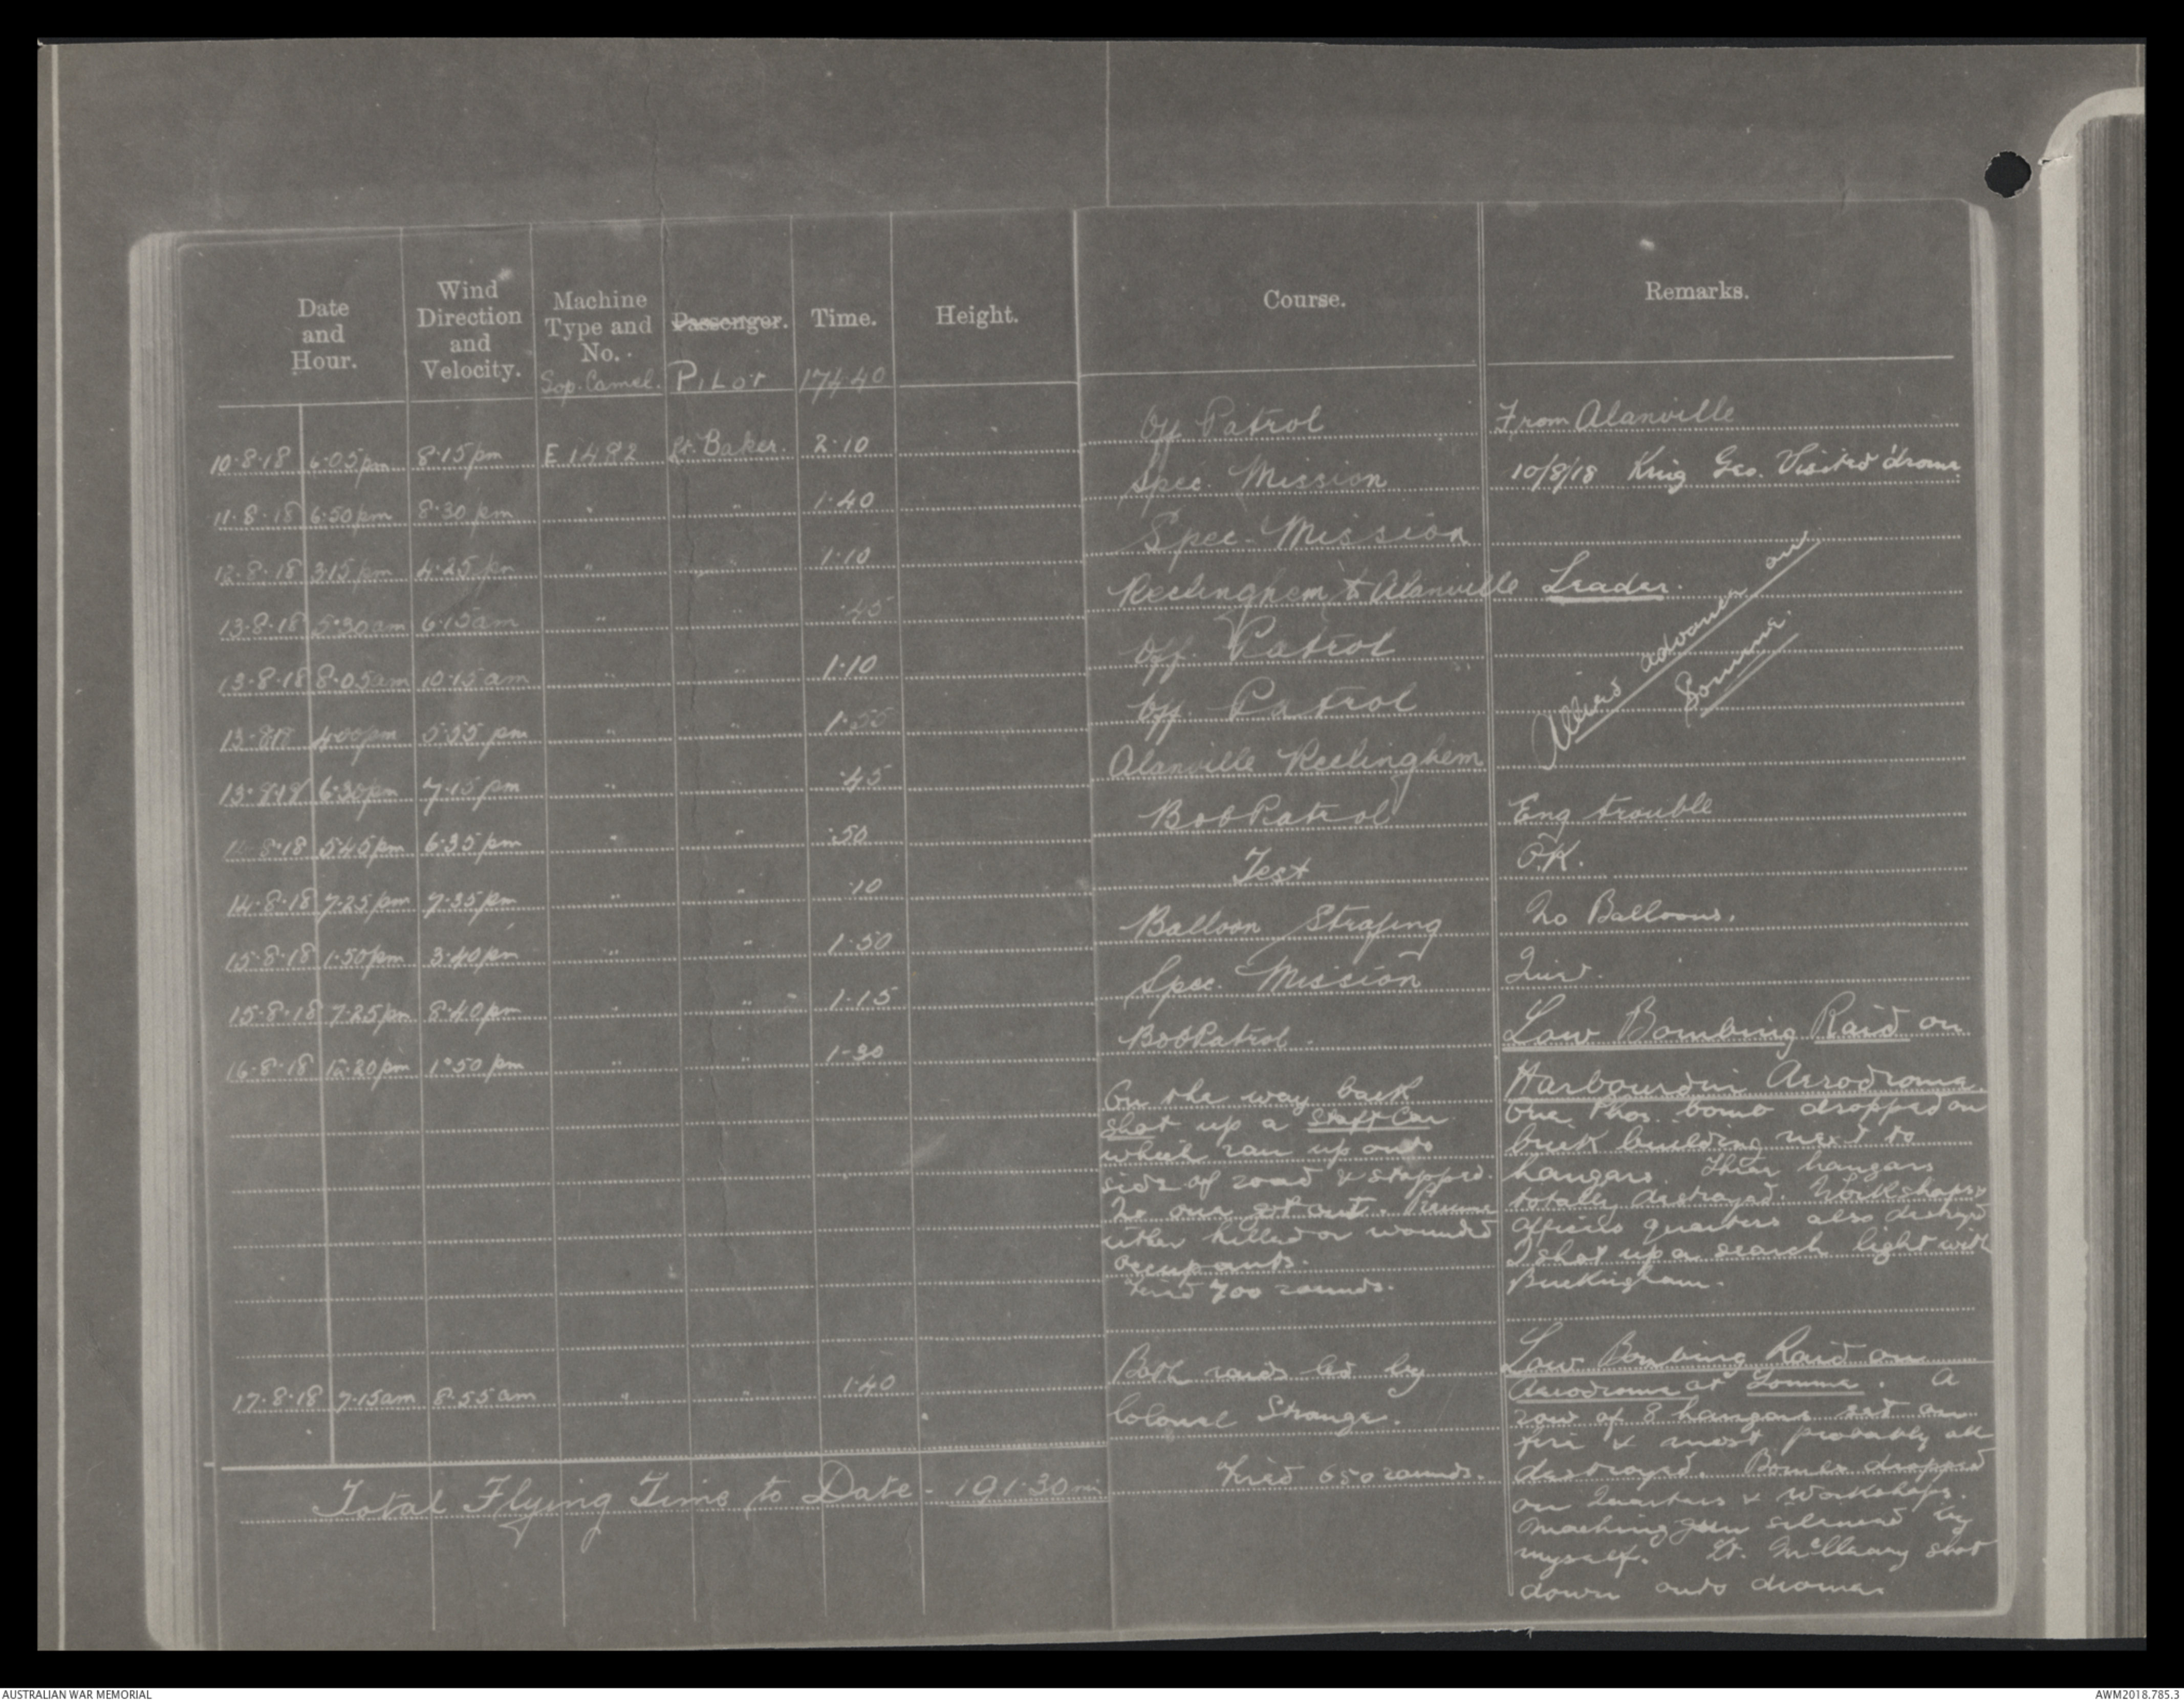 Date and Hour. Wind Direction and Velocity. Machine Type and No. Passenger. Time. Height. Course. Remarks.
Sop. Camel. PILOT 174.40
10.8.18 6.05pm 8.15pm E1482 Lt. Baker. 2.10 Off Patrol From Alanville
11.8.18 6.50pm 8.30pm " " 1.40 Spec. Mission 10/8/18 King Geo. Visited 'drome
12.8.18 3.15pm 4.25pm " " 1.10 Spec. Mission
13.8.18 5.30am 6.15am " " .45 Reclinghem to Alanville Leader.
13.8.18 8.05am 10.15am " 1.10 Off. Patrol
13.8.18 4.00pm 5.55pm " " 1.55 Off. Patrol
Allies advance on
Somme.
13.8.18 6.30pm 7.15pm " " .45 Alanville Reclinghem
14.8.18 5.45pm 6.35pm " " .50 Bob Patrol Eng trouble
14.8.18 7.25pm 7.35pm " " .10 Test O.K.
15.8.18 1.50pm 3.40pm " " 1.50 Balloon Strafing No Balloons.
15.8.18 7.25pm 8.40pm " " 1.15 Spec. Mission
16.8.18 12.20pm 1.50pm " " 1-30 Bob Patrol. Low Bombing Raid on
Harbourdin Aerodrome.
On the way back
shot up a Staff Car
which ran up onto
side of road & stopped.
No one got out. Presume
either killed or wounded
occupants.
Fired 700 rounds.
One Phos. bomb dropped on
brick building next to
hangars. Their hangars
totally destroyed. Workshops &
officers quarters also destroyed
I shot up a search light with
Buckingham.
17.8.18 7.15am 8.55am " " 1.40
Both raids led by
Colonel Strange.
Fired 650 rounds.
Low Bombing Raid on
Aerodrome at Lomme. A
row of 8 hangars set on
fire & most probably all
destroyed. Bombs dropped
on Quarters & Workshops.
Machine gun silenced by
myself. Lt. McCleary shot
down onto drome
Total Flying Time to Date - 191.30 min
AUSTRALIAN WAR MEMORIAL
AWM2018.785.3